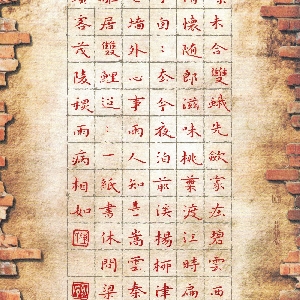 未合雙蛾先斂家在碧雲西
懷隨郎滋味桃葉渡江時扁
今夜泊前溪楊柳津
墻外心事兩人知嵩雲秦
居雙鯉迢一紙書休問梁
客茂陵穐雨病相如